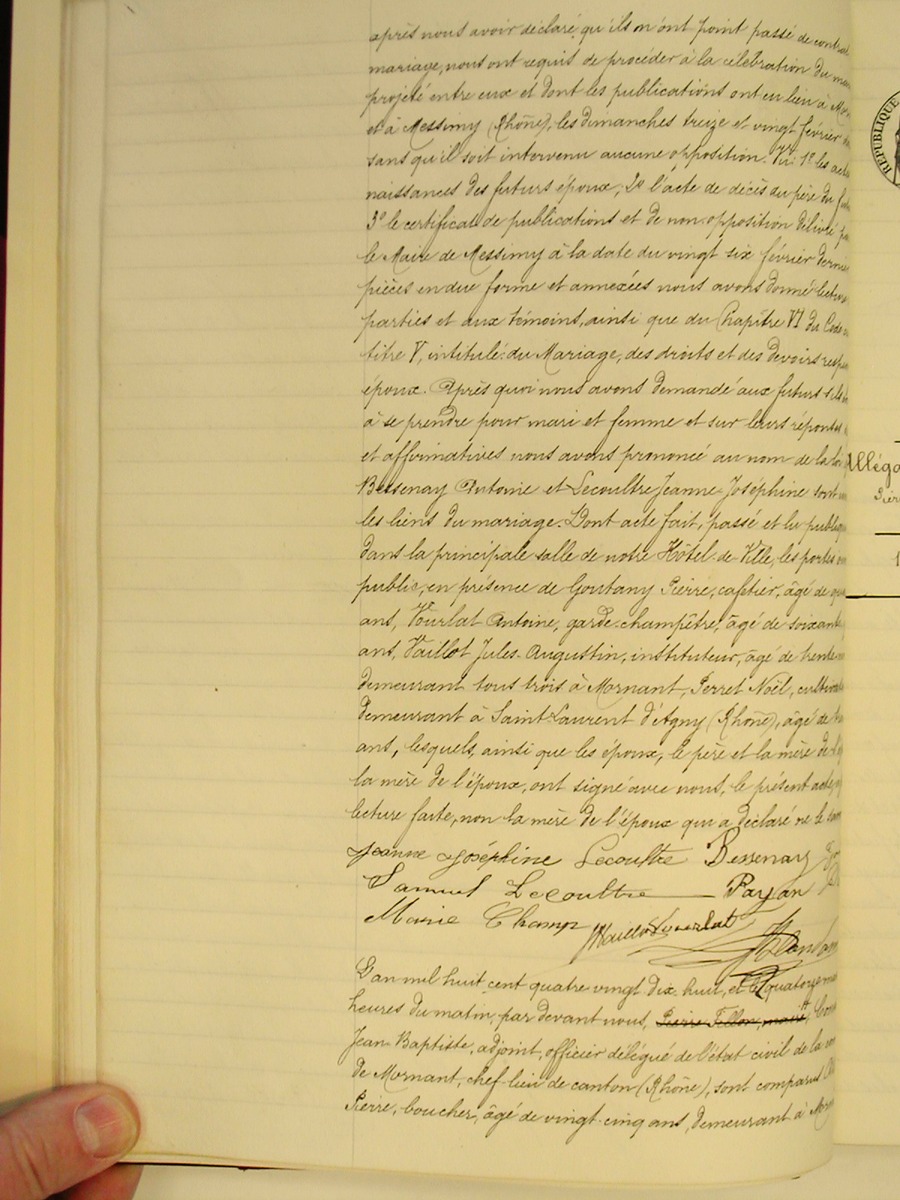 après nous avoir déclaré qu'ils n'ont point passé de
mariage, nous ont requis de procéder à la célébration du
projeté entre eux et dont les publications ont eu lieu à
et à Messimy (Rhône), les dimanches treize et vingt février
sans qu'il soit intervenu aucune opposition. Vu: 1º les
naissances des futurs époux; 2º l'acte de décès du père du
3º le certificat de publications et de non-opposition délivré
le Maire de Messimy à la date du vingt six février
pièces en due forme et annexées nous avons donné
parties et aux témoins, ainsi que du Chapitre VI du Code
titre V, intitulé: du Mariage, des droits et des devoirs
époux. Après quoi nous avons demandé aux futurs s'ils
à se prendre pour mari et femme et sur leurs réponses
et affirmatives nous avons prononcé au nom de la
Bessenay Antoine et Lecoultre Jeanne-Joséphine sont
les liens du mariage. Dont acte fait, passé et lu
dans la principale salle de notre Hôtel-de-Ville, les portes
public, en présence de Goutany Pierre, cafetier, âgé de
ans, Vourlat Antoine, garde-champêtre, âgé de
ans, Vaillot Jules-Augustin, instituteur, âgé de
demeurant tous trois à Mornant, Perret Noël,
demeurant à Saint-Laurent d'Agny (Rhône), âgé de
ans, lesquels, ainsi que les époux, le père et la mère de
la mère de l'époux, ont signé avec nous, le présent acte,
lecture faite, non la mère de l'époux qui a déclaré ne le
Jeanne Joséphine Lecoultre Bessenay
Samuel Lecoultre Payan
Marie Champ
L'an mil huit cent quatre vingt dix-huit, et le quatorze
heures du matin, par devant nous, Pierre Fellon, maire,
Jean-Baptiste, adjoint, officier délégué de l'état civil de la
de Mornant, chef-lieu de canton (Rhône), sont comparus
Pierre, boucher, âgé de vingt-cinq ans, demeurant à
RÉPUBLIQUE